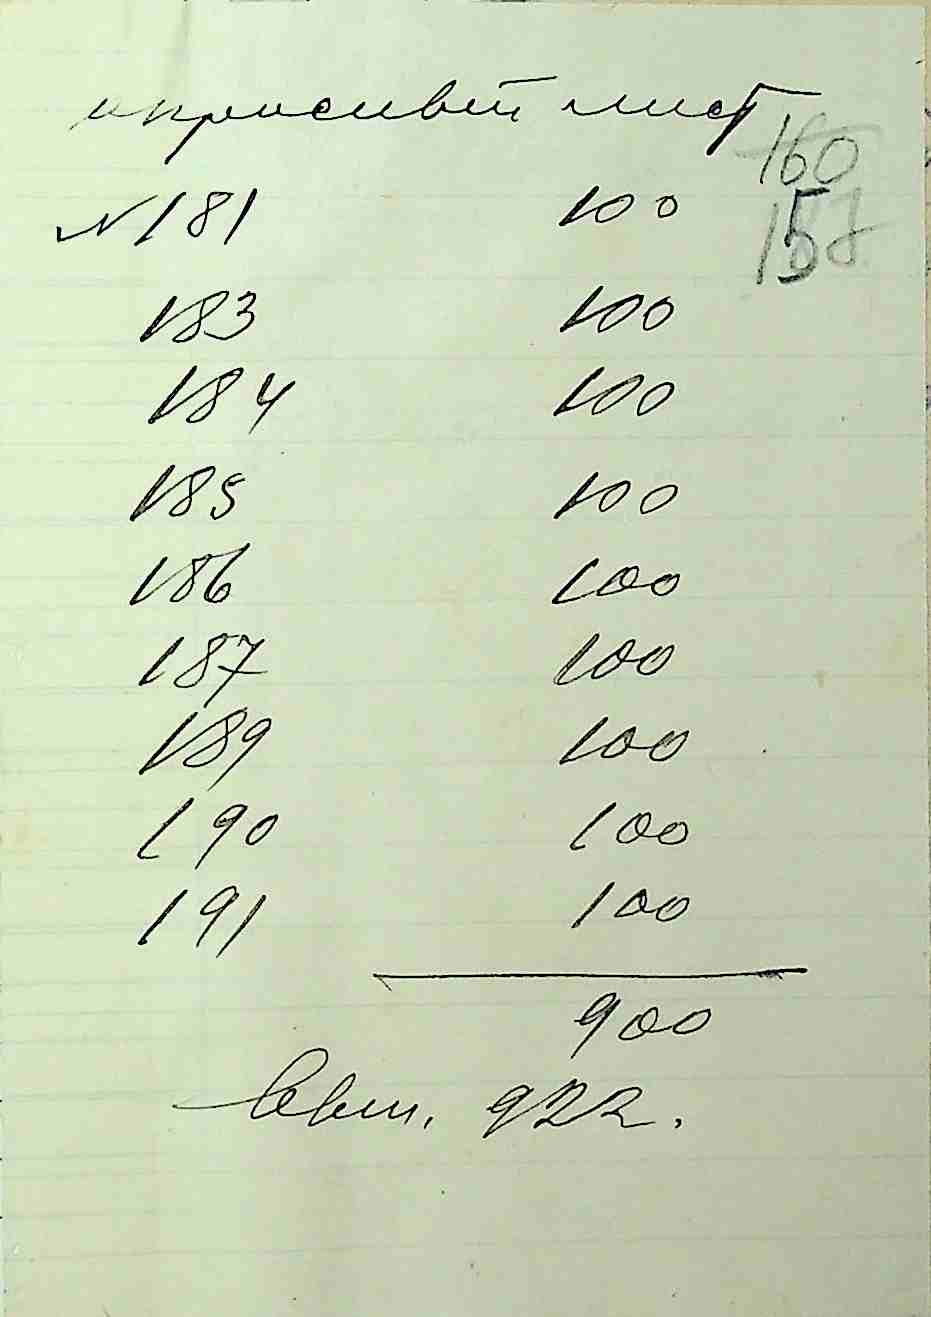 опросивый лист
160
№ 181 100
157
183 100
184 100
185 100
186 100
187 100
189 100
190 100
191 100
900
922.